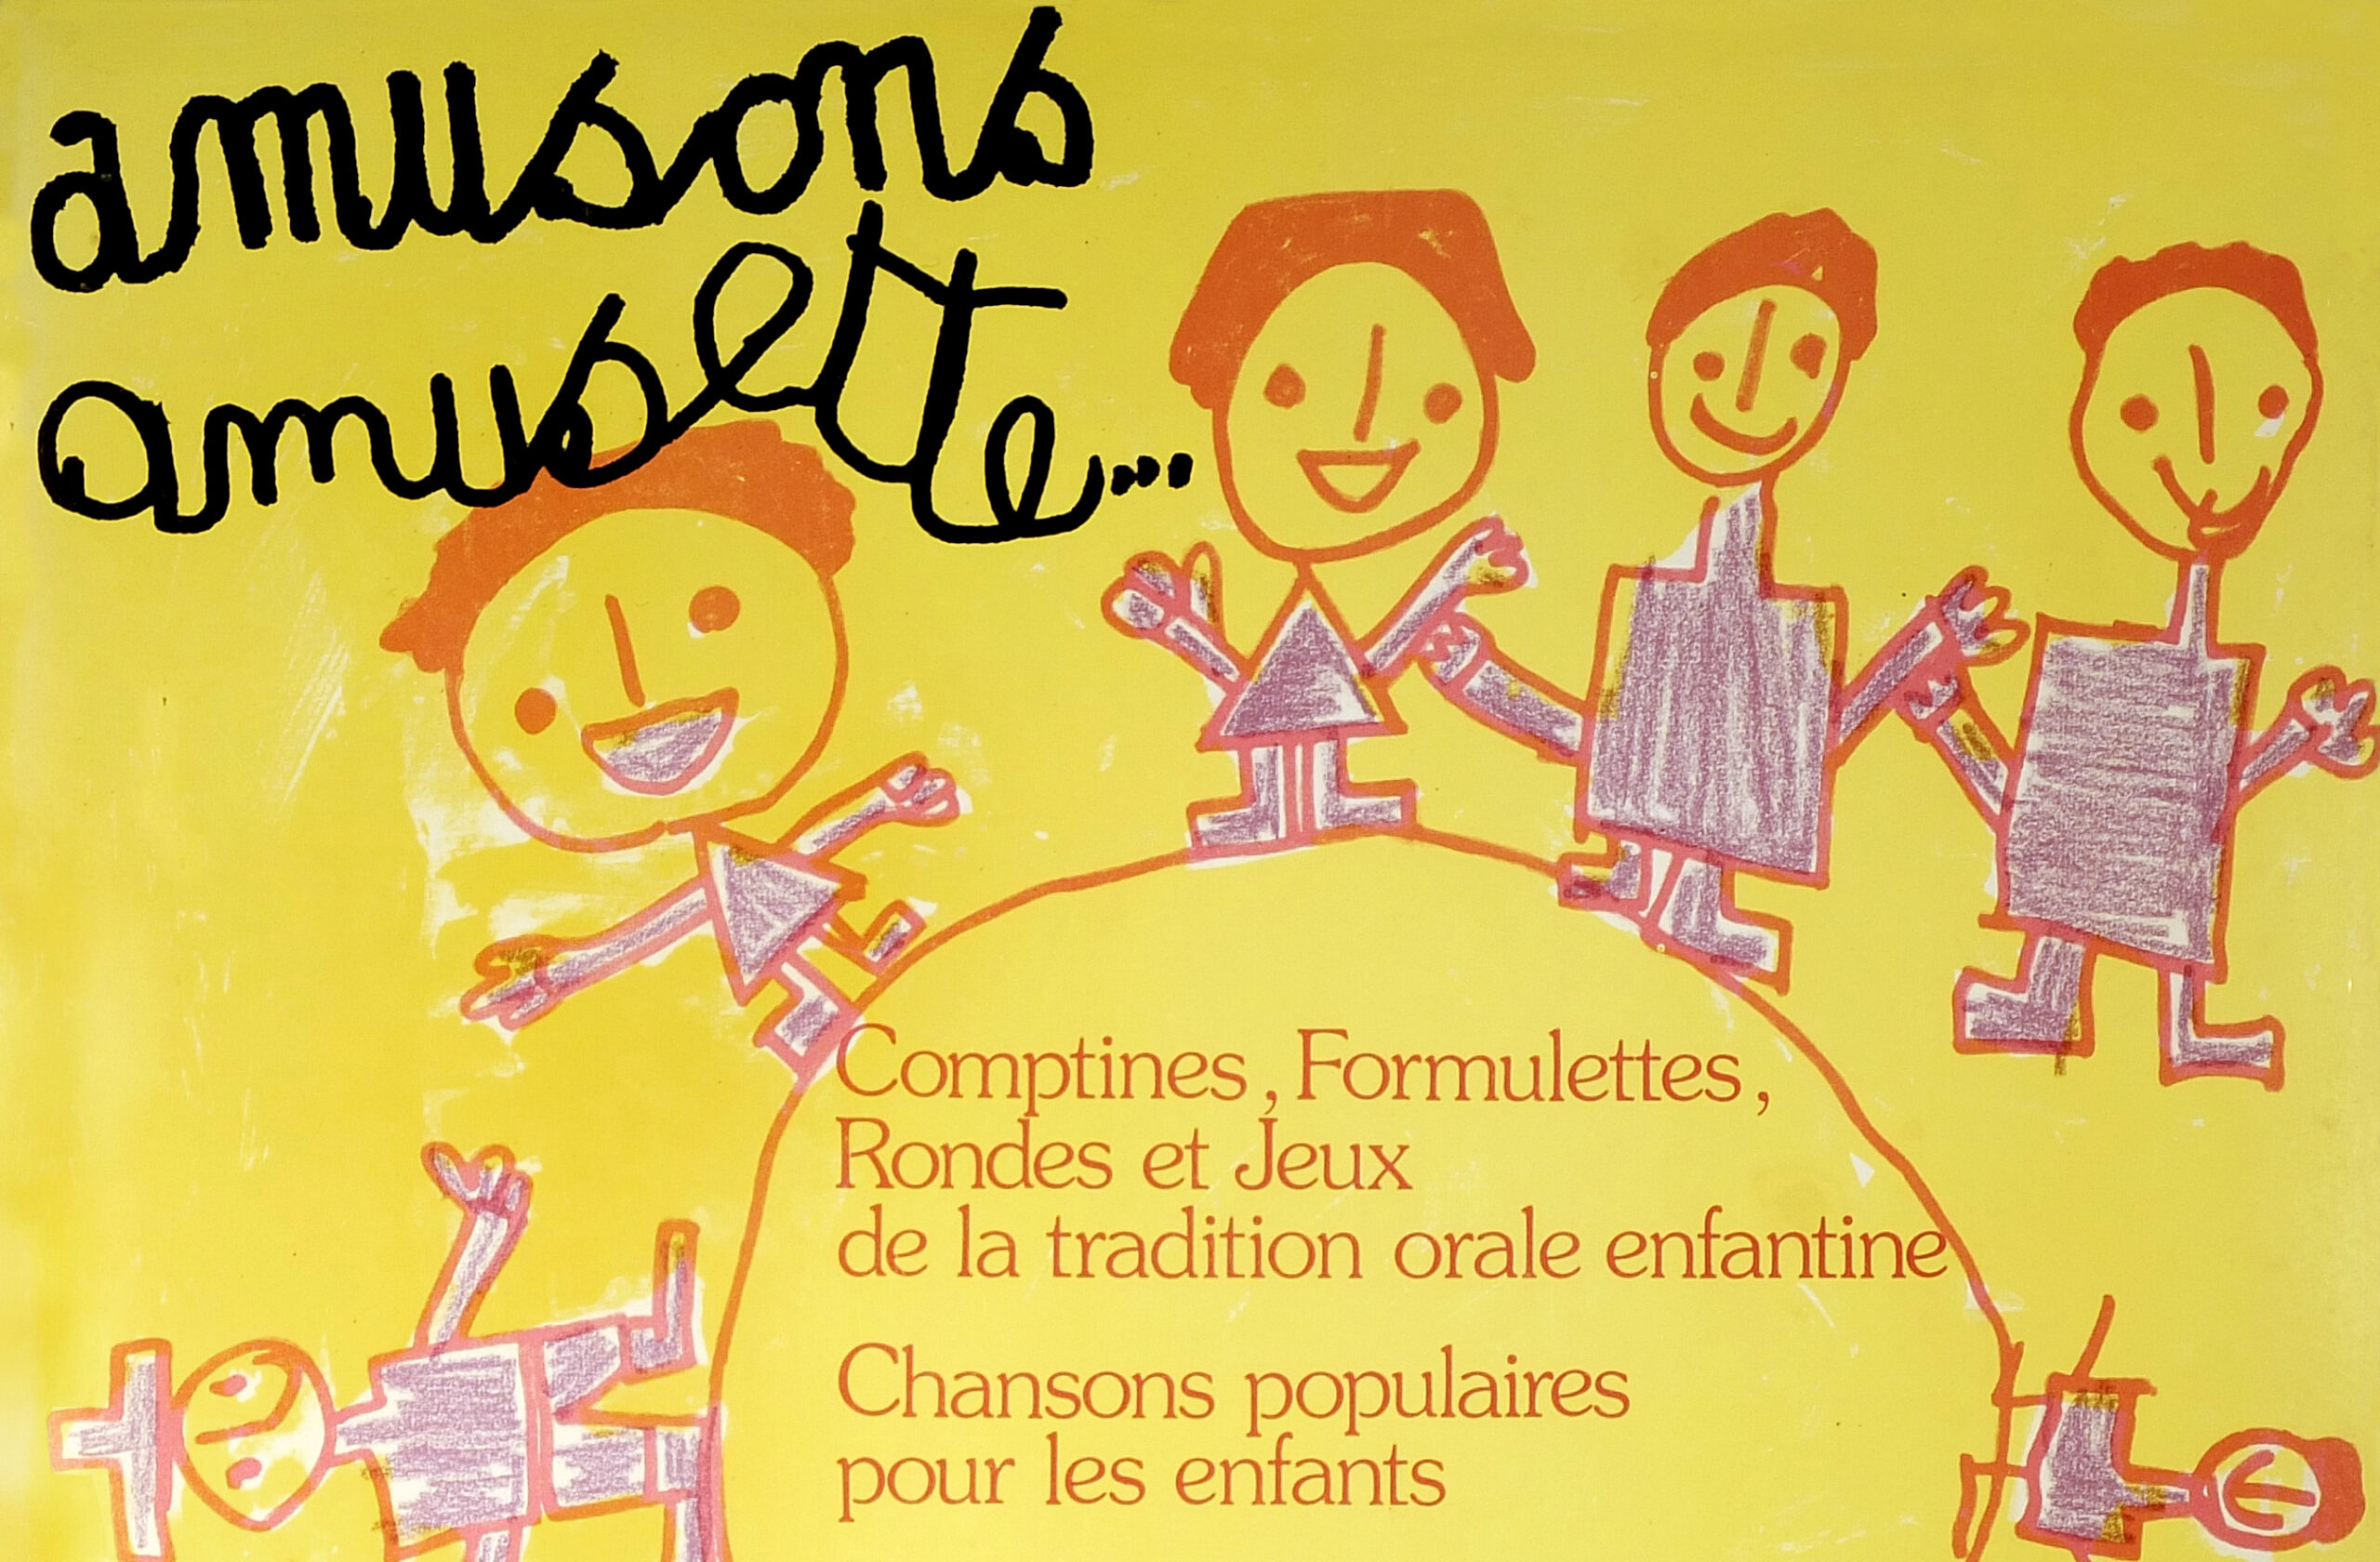 amusons
amusette...
Comptines, Formulettes,
Rondes et Jeux
de la tradition orale enfantine
Chansons populaires
pour les enfants